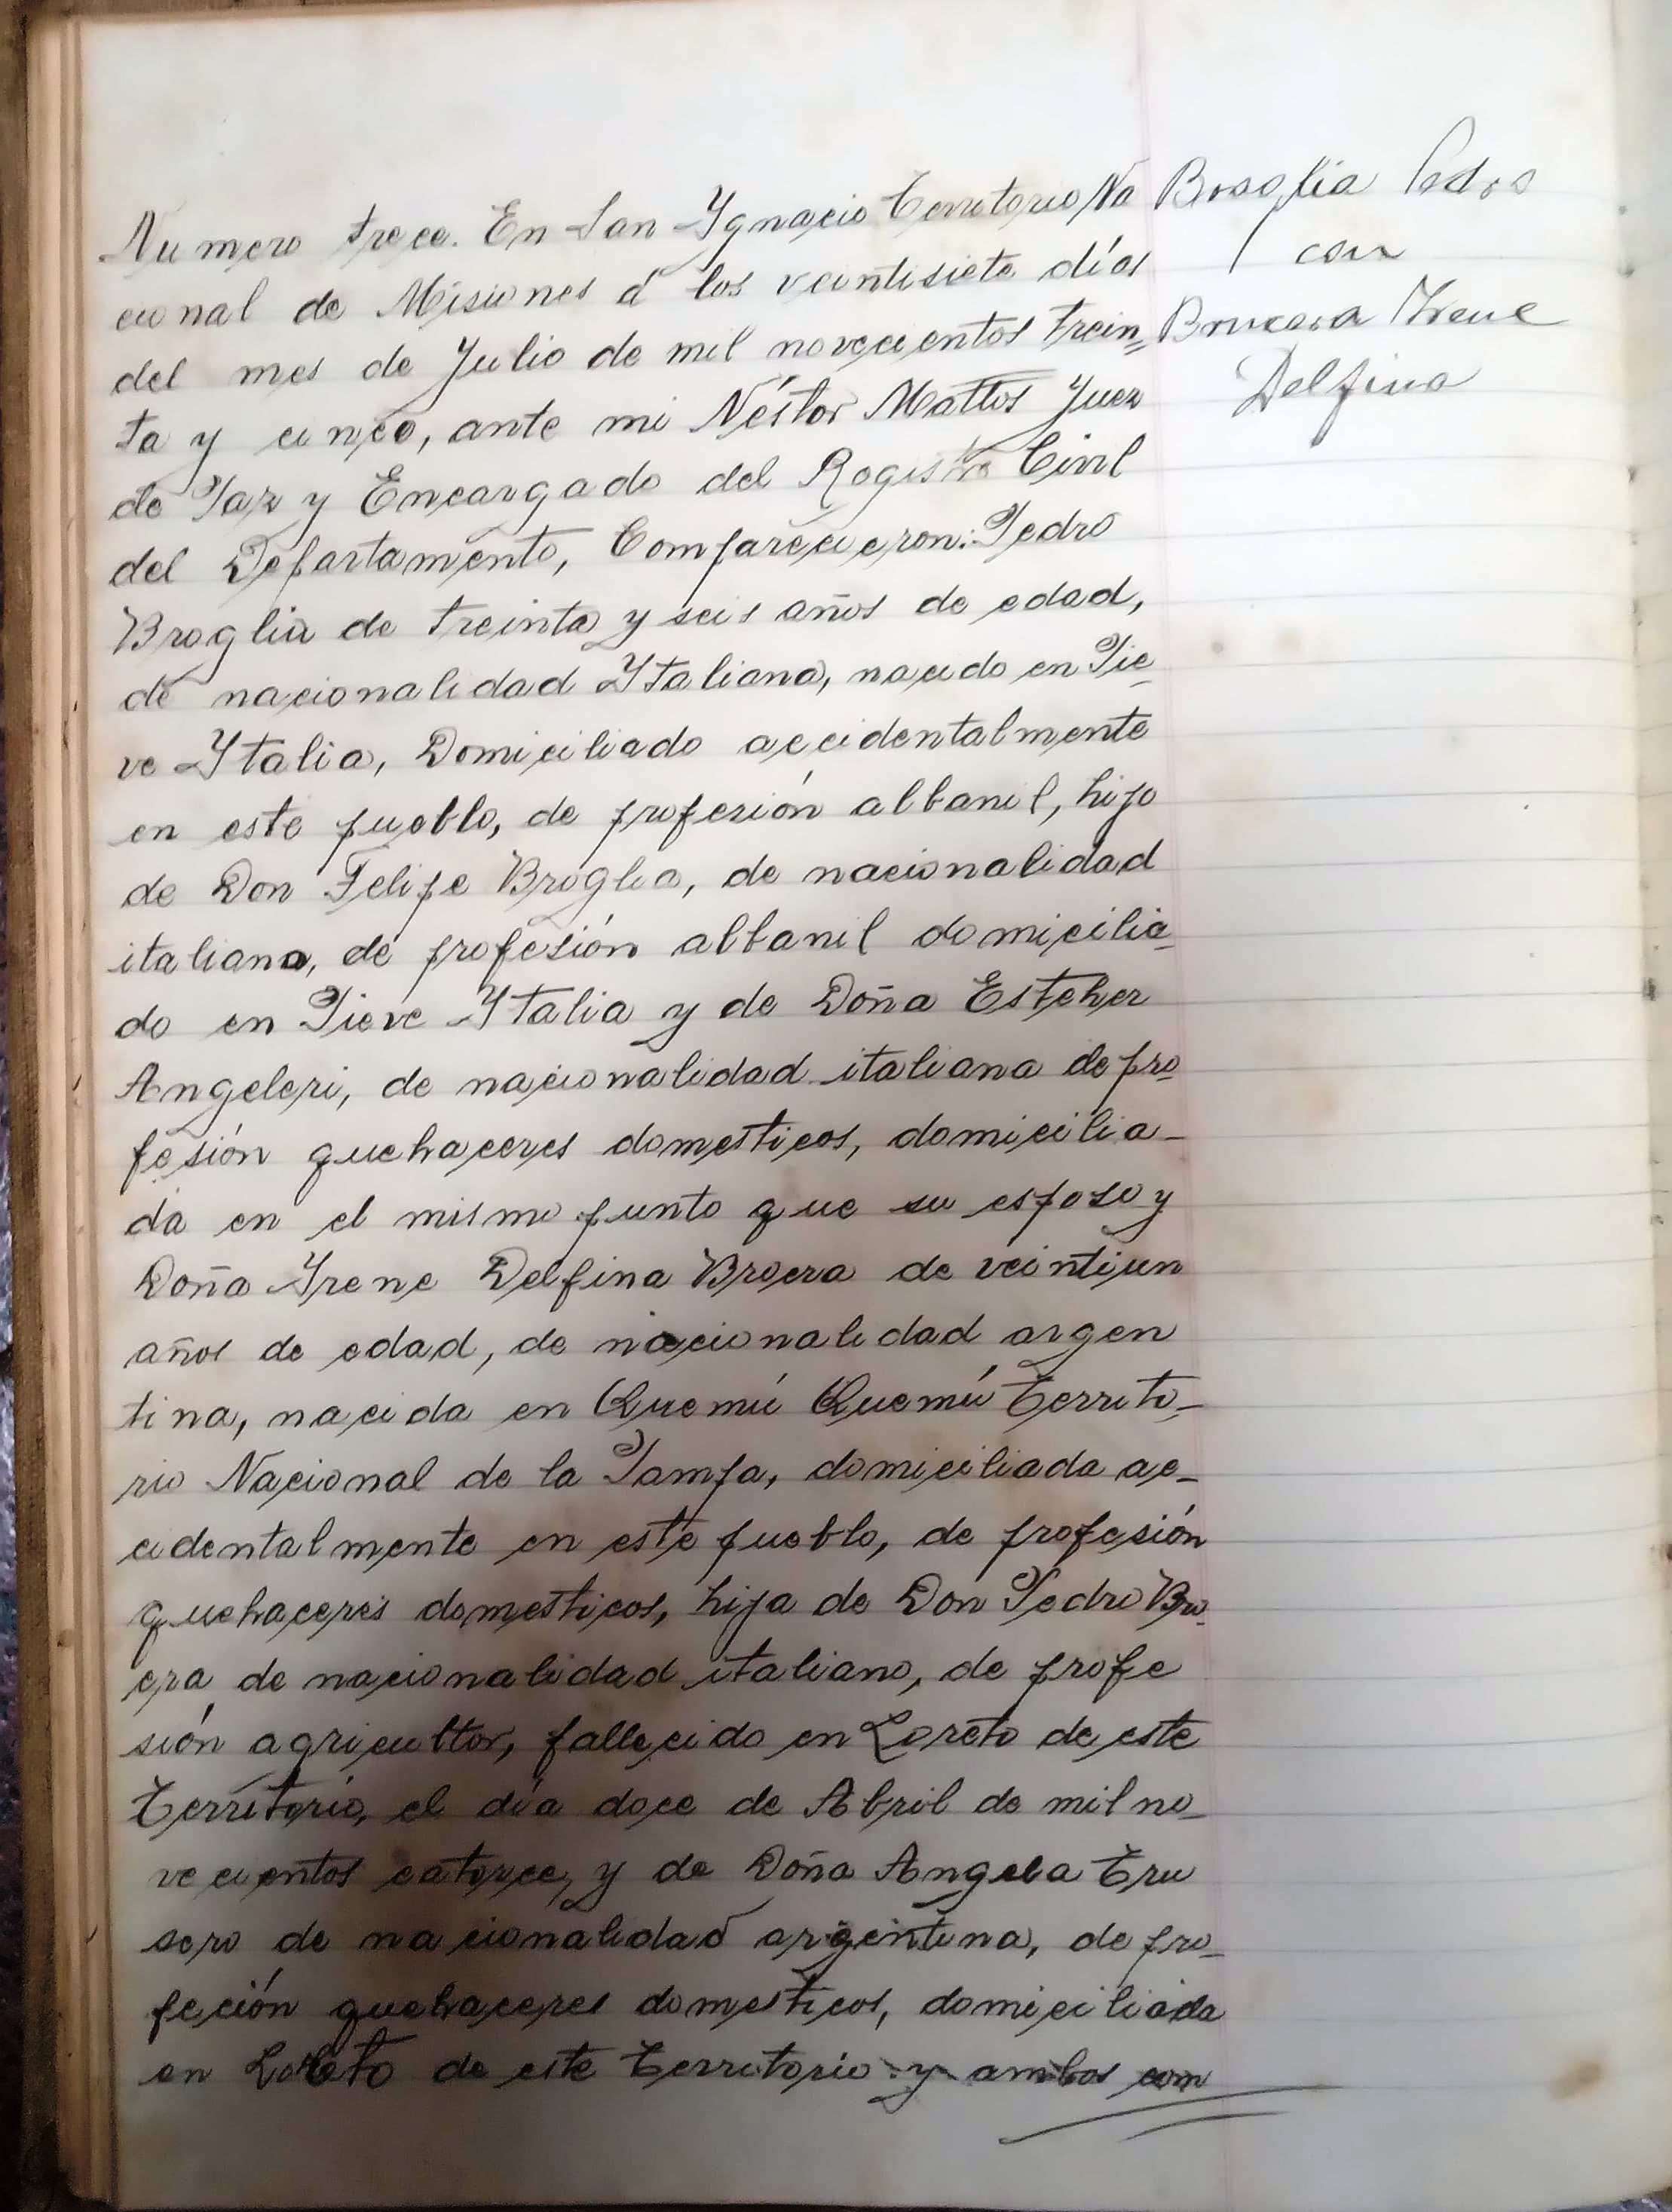 Numero trece. En San Ygnacio Territorio Na
cional de Misiones á los veintisiete días
del mes de Julio de mil novecientos trein=
ta y cinco, ante mi Néstor Mattos Juez
de Paz y Encargado del Registro Civil
del Departamento, Comparecieron: Pedro
Broglia de treinta y seis años de edad,
de nacionalidad Ytaliana, nacido en Pie
ve Ytalia, Domiciliado accidentalmente
en este pueblo, de profesión albanil, hijo
de Don Felipe Broglia, de nacionalidad
italiana, de profesión albanil domicilia=
do en Pieve Ytalia y de Doña Esteher
Angeleri, de nacionalidad italiana de pro
fesión quehaceres domesticos, domicilia-
da en el mismo punto que su esposo y
Doña Yrene Delfina Broera de veintiun
años de edad, de nacionalidad argen
tina, nacida en Quemú Quemú Territo-
rio Nacional de la Pampa, domiciliada ac-
cidentalmente en este pueblo, de profesión
quehaceres domesticos, hija de Don Pedro Bro
era de nacionalidad italiano, de profe
sión agricultor, fallecido en Loreto de este
Territorio, el día doce de Abril de mil no-
vecientos catorce, y de Doña Angela Tru
sero de nacionalidad argentina, de pro-
feción quehaceres domesticos, domiciliada
en Loreto de este Territorio y ambos com
Broglia Pedro
con
Yrene
Delfina